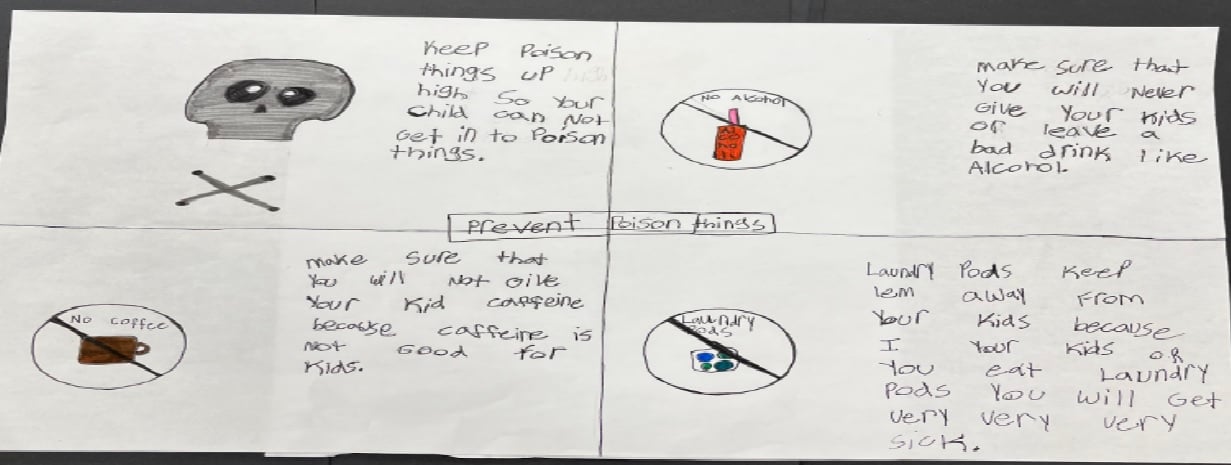 Keep Poison
things up
high So Your
Child can Not
Get in to Poison
things.
No Alcohol
make sure that
You will Never
Give Your kids
or leave a
bad drink like
Alcohol.
Prevent Poison things
No coffee
make sure that
You will Not Give
Your Kid
because caffeine is
Not Good for
Kids.
Laundry
Pods
Laundry Pods Keep
lem away From
Your Kids because
I Your Kids OR
You eat Laundry
Pods You Will Get
very very very
sick.